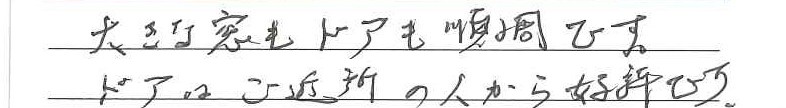 大きな窓もドアも順調です。
ドアはご近所の人から好評です。